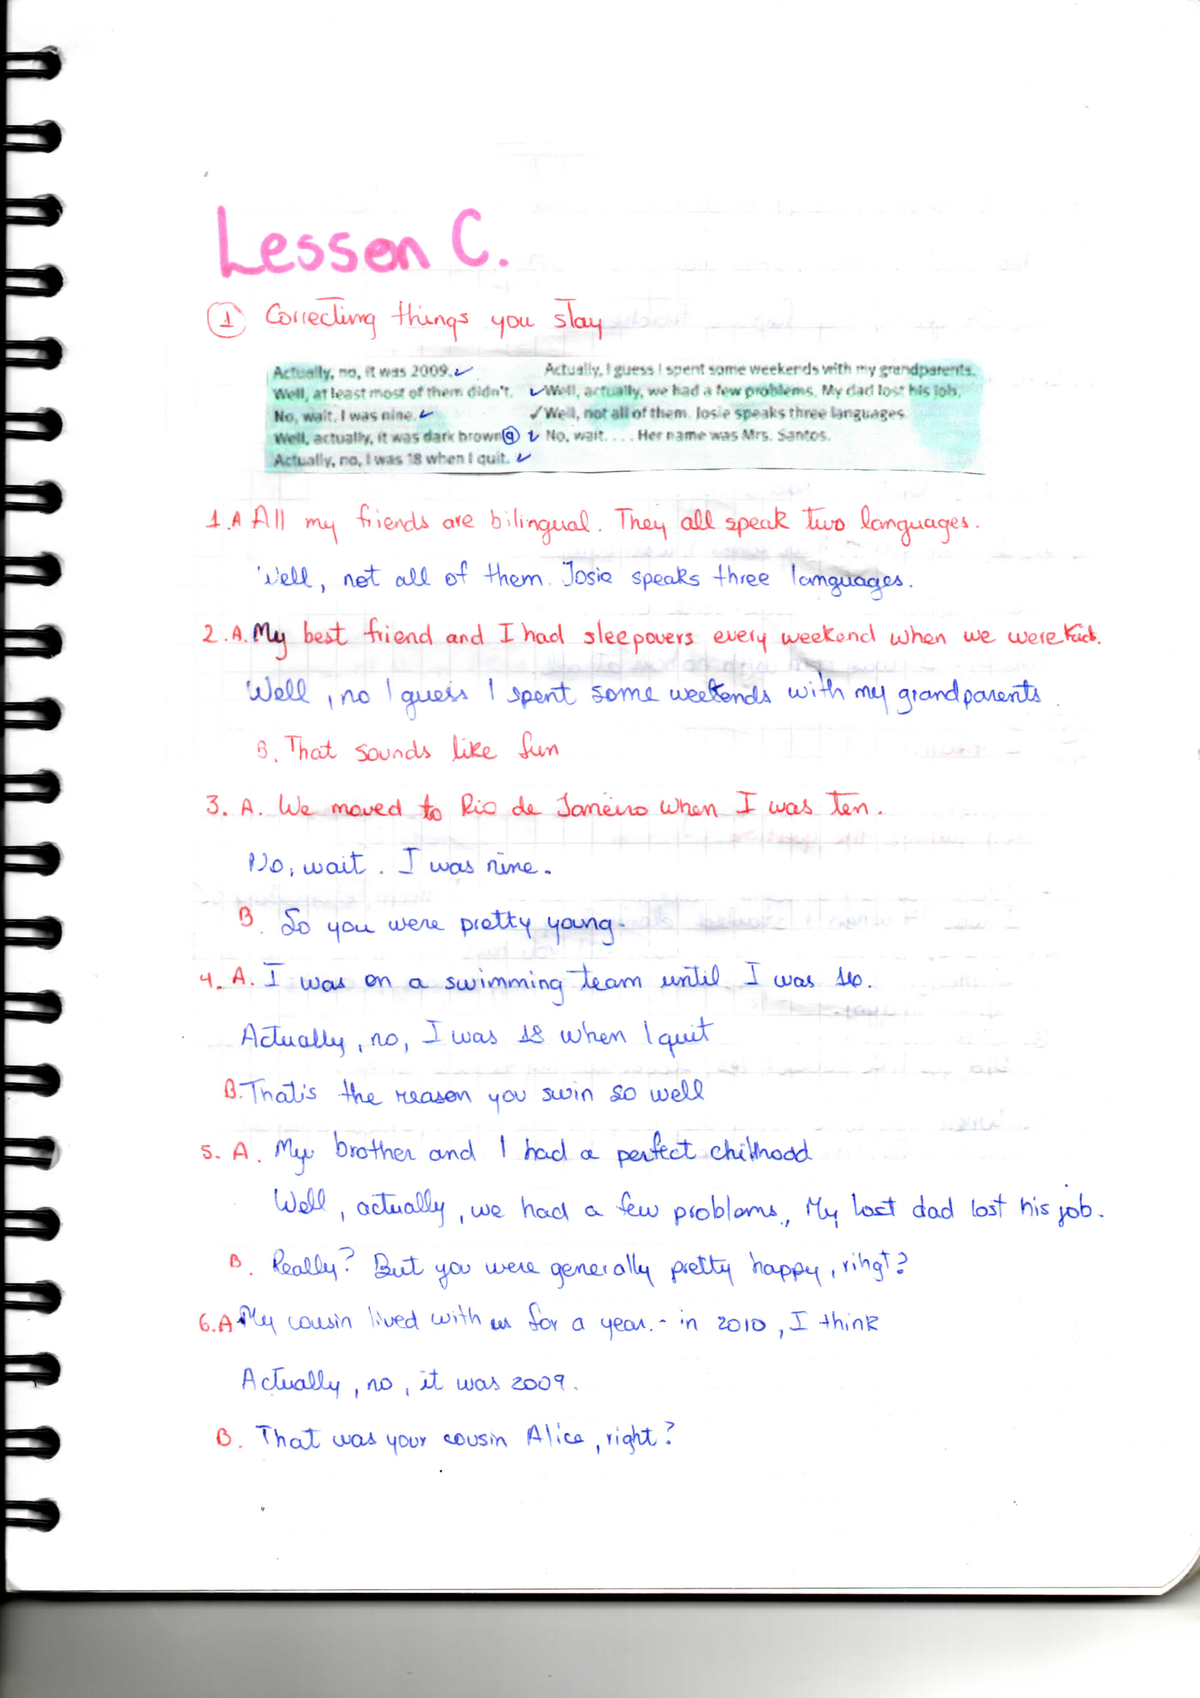 Lesson C.
1 Correcting things you stay
Actually, no, it was 2009. ✓ Actually, I guess I spent some weekends with my grandparents.
Well, at least most of them didn't. ✓ Well, actually, we had a few problems. My dad lost his job.
No, wait. I was nine. ✓ ✓ Well, not all of them. Josie speaks three languages.
Well, actually, it was dark brown. 9 ✓ No, wait. . . . Her name was Mrs. Santos.
Actually, no, I was 18 when I quit. ✓
1.A All my friends are bilingual. They all speak two languages.
Well, not all of them. Josie speaks three languages.
2.A. My best friend and I had sleepovers every weekend when we were
Well, no I guess I spent some weekends with my grandparents.
B. That sounds like fun
3. A. We moved to Rio de Janeiro when I was ten.
No, wait. I was nine.
B. So you were pretty young.
4. A. I was on a swimming team until I was
Actually, no, I was 18 when I quit
B. That's the reason you swin so well
5. A. My brother and I had a perfect
Well, actually, we had a few problems, My lost dad lost his job.
B. Really? But you were generally pretty happy, rihgt?
6.A My cousin lived with us for a year. - in 2010, I think
Actually, no, it was 2009.
B. That was your cousin Alice, right?